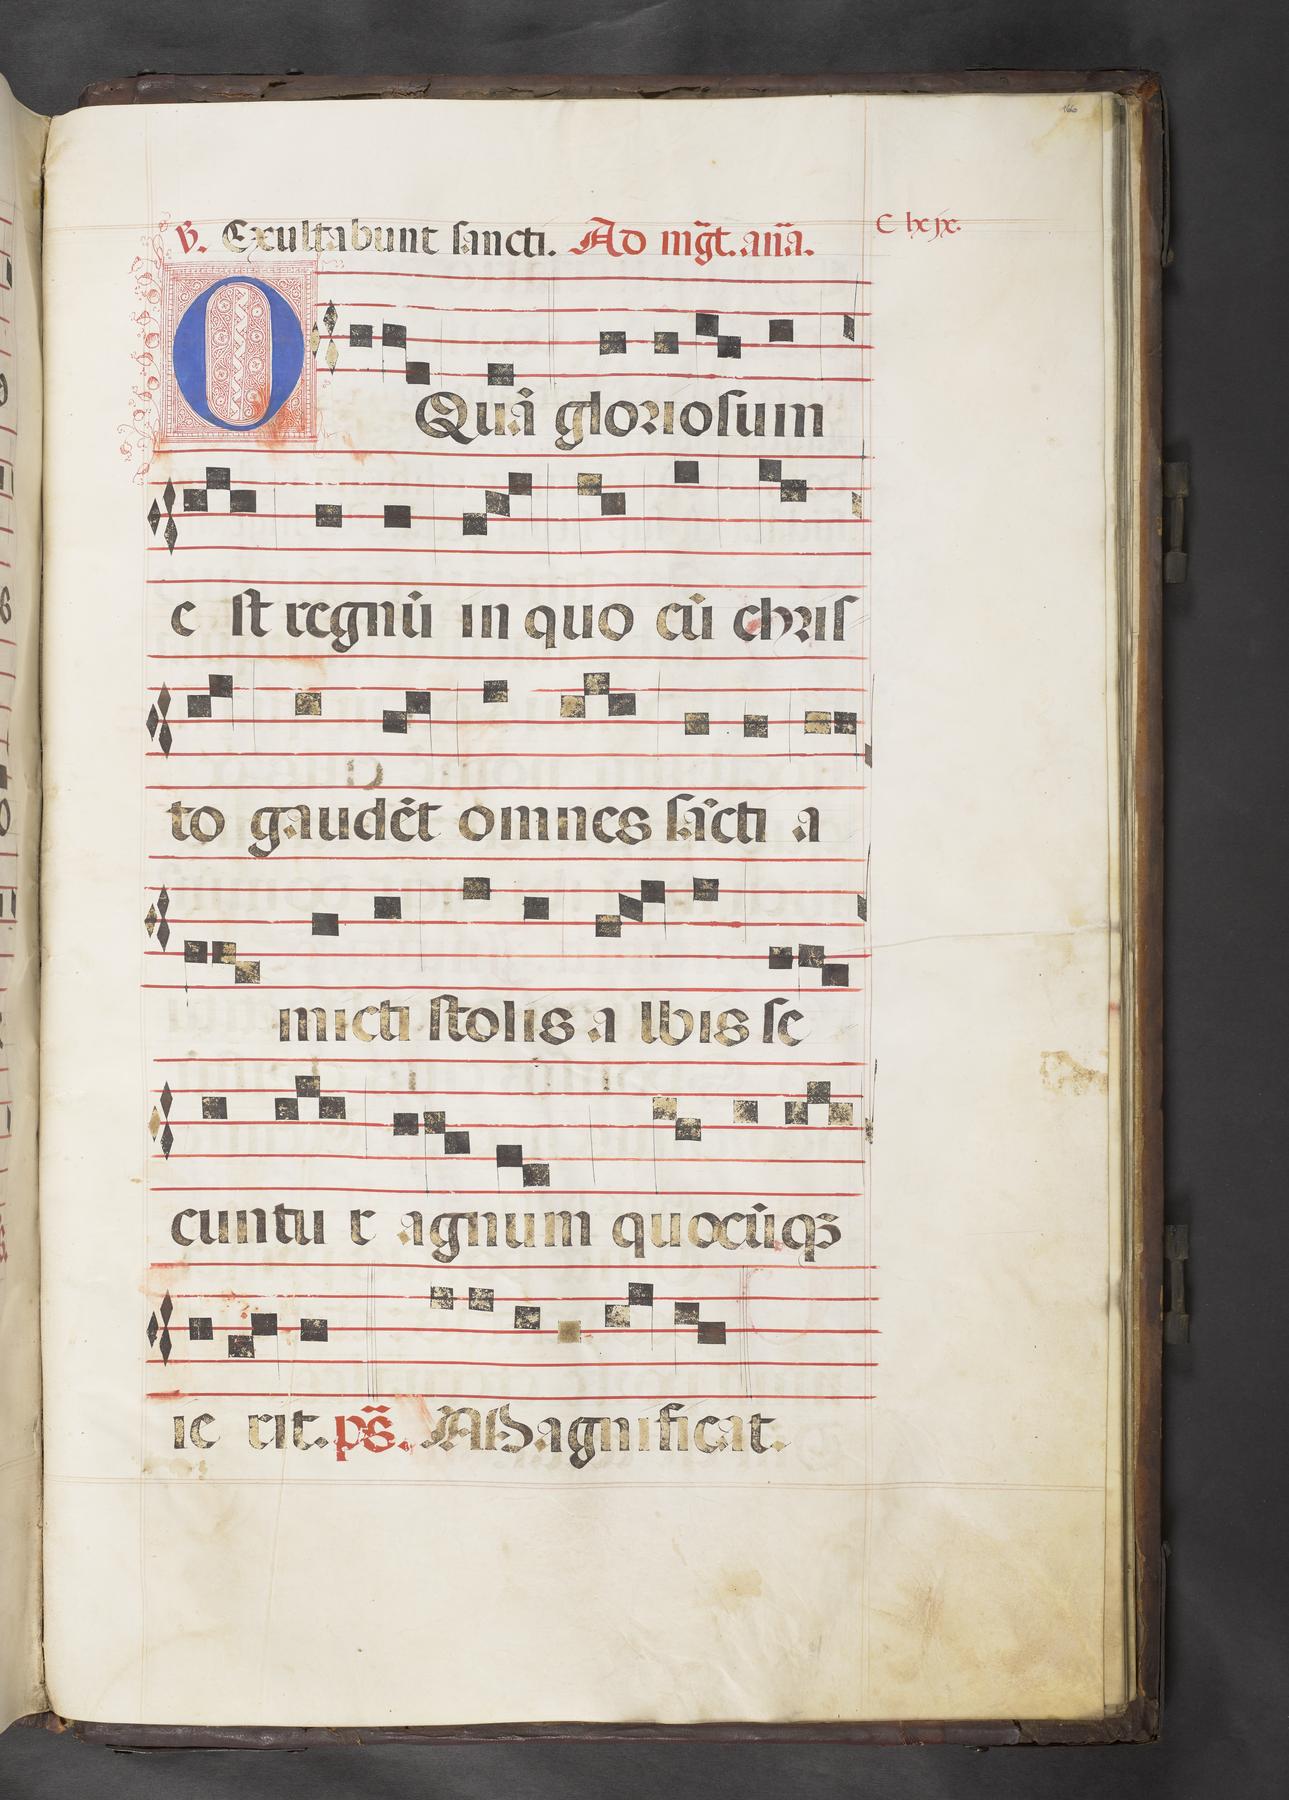 166
C lxjx.
℣. Exultabunt sancti. Ad mg̃t. añã.
O Quã gloriosum
e st regnũ in quo cũ chris
to gaudẽt omnes sãcti a
micti stolis a lbis se
cuntu r agnum quocũqꝫ
ie rit. ps̃. Magnificat.